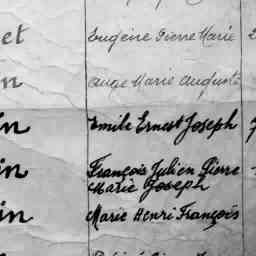 et Eugène Pierre Marie 2
n Ange Marie Auguste
in Emile Ernest Joseph
in François Julien Pierre
Marie Joseph
in Marie Henri François